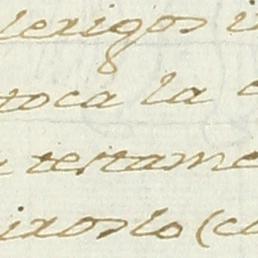 lerigos
toca la
testame
ixoslo (c